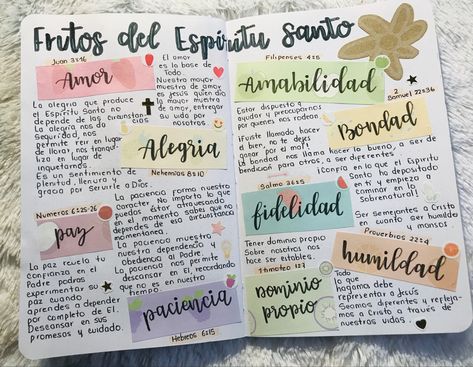 Frutos del Espíritu Santo
Juan 3:16
Amor
El amor
es la base de
Todo.
Nuestra mayor
muestra de amor
es Jesús quien dio
la mayor muestra
de amor, entregar
su vida por
nosotros.
La alegría que produce
el Espíritu Santo no
depende de las circunstan
cias. La alegría nos da
seguridad, nos
permite reír en lugar
de llorar, nos tranqui
liza en lugar de
inquietarnos.
Es un sentimiento de
plenitud, llenura y
gracia por servirle a Dios.
Alegría
Nehemías 8:10
Números 6:25-26
paz
La paciencia forma nuestro
carácter. No importa lo que
puedas estar atravesando
en el momento, sabes que no
dependes de esa circunstancia
momentánea.
La paciencia muestra
nuestra dependencia y
obediencia al Padre.
La paciencia nos permite
descansar en El, recordando
que no es en nuestro
tiempo.
La paz revela tu
confianza en el
Padre, podrás
experimentar su
paz cuando
aprendes a depender
por completo de El.
Descansar en sus
promesas y cuidado.
paciencia
Hebreos 6:15
Filipenses 4:5
Amabilidad
Estar dispuesto a
ayudar y preocuparnos
por quienes nos rodean.
2
Samuel 22:36
Bondad
¡Fuiste llamado hacer
el bien, no te dejes
ganar por el mal!
La bondad nos llama hacer lo bueno, a ser de
bendición para otros, a ser diferentes.
Salmo 36:5
fidelidad
Compra en lo que el Espíritu
Santo ha depositado
en ti y empieza a
caminar en lo
Sobrenatural!
Ser Semejantes a Cristo
en cuanto ser humilde
y mansos
Proverbios 22:4
humildad
Tener dominio propio
Sobre nosotros nos
hace ser estables.
1 Timoteo
Dominio
propio
Todo
lo que
hagamos debe
representar a Jesús
Seamos diferentes y refleje-
mos a Cristo a través de
nuestras vidas.